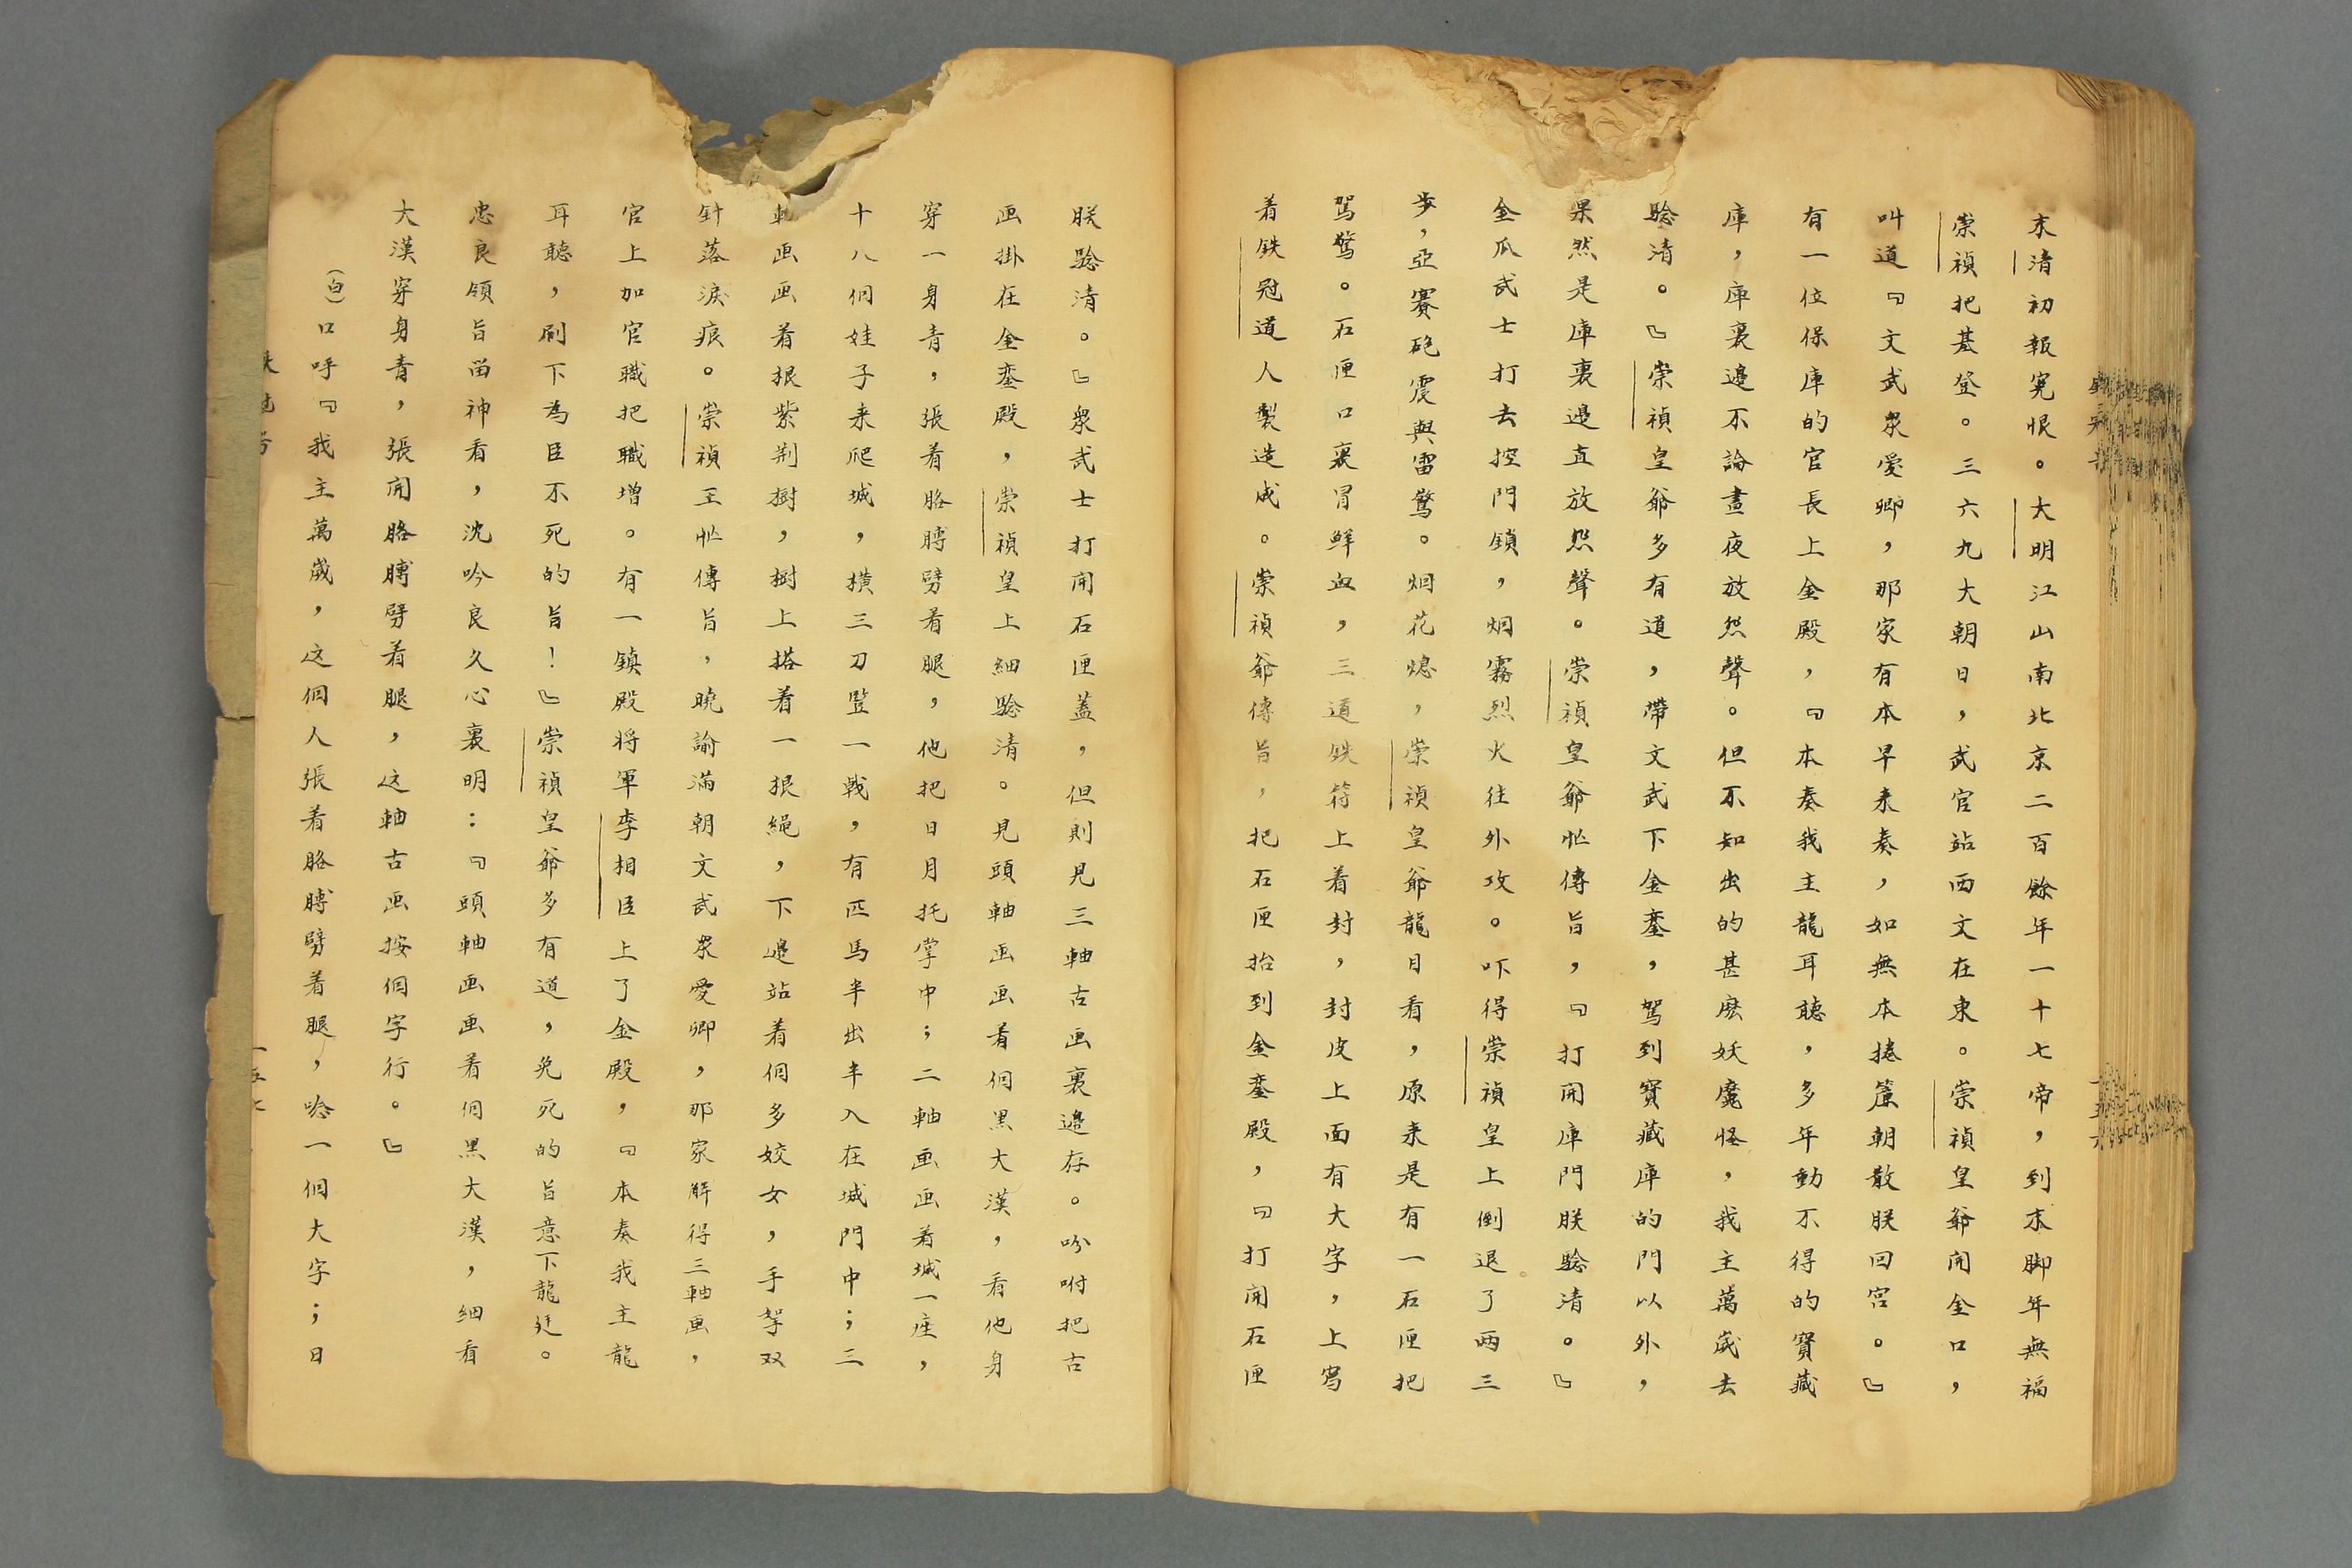 末清初報寃恨。大明江山南北京二百餘年一十七帝，到末脚年無福
崇禎把基登。三六九大朝日，武官站西文在東。崇禎皇爺開金口，
叫道『文武衆愛卿，那家有本早来奏，如無本捲簾朝散朕回宮。』
有一位保庫的官長上金殿，『本奏我主龍耳聽，多年動不得的寶藏
庫，庫裏邊不論晝夜放怨聲。但不知出的甚麽妖魔怪，我主萬歲去
驗清。』崇禎皇爺多有道，帶文武下金鑾，駕到寶藏庫的門以外，
果然是庫裏邊直放怨聲。崇禎皇爺忙傳旨，『打開庫門朕驗清。』
金瓜武士打去控門鎖，烟霧烈火往外攻。吓得崇禎皇上倒退了两三
步，亞賽砲震與雷驚。烟花熄，崇禎皇爺龍目看，原来是有一石匣把
駕驚。石匣口裏冒鮮血，三道鉄符上着封，封皮上面有大字，上寫
着鉄冠道人製造成。崇禎爺傳旨，把石匣抬到金鑾殿，『打開石匣
朕驗清。』衆武士打開石匣蓋，但則見三軸古画裏邊存。吩咐把古
画掛在金鑾殿，崇禎皇上細驗清。見頭軸画画着個黑大漢，看他身
穿一身青，張着胳膊劈着腿，他把日月托掌中；二軸画画着城一座，
十八個娃子来爬城，横三刀豎一戟，有匹馬半出半入在城門中；三
軸画画着根紫荆樹，樹上搭着一根繩，下邊站着個多姣女，手拏双
針落淚痕。崇禎王忙傳旨，曉諭滿朝文武衆愛卿，那家解得三軸画，
官上加官職把職增。有一鎮殿将軍李相臣上了金殿，『本奏我主龍
耳聽，刷下為臣不死的旨！』崇禎皇爺多有道，免死的旨意下龍廷。
忠良領旨畄神看，沈吟良久心裏明：『頭軸画画着個黑大漢，細看
大漢穿身青，張開胳膊劈着腿，这軸古画按個字行。』
（白）口呼『我主萬歲，这個人張着胳膊劈着腿，唸一個大字；日